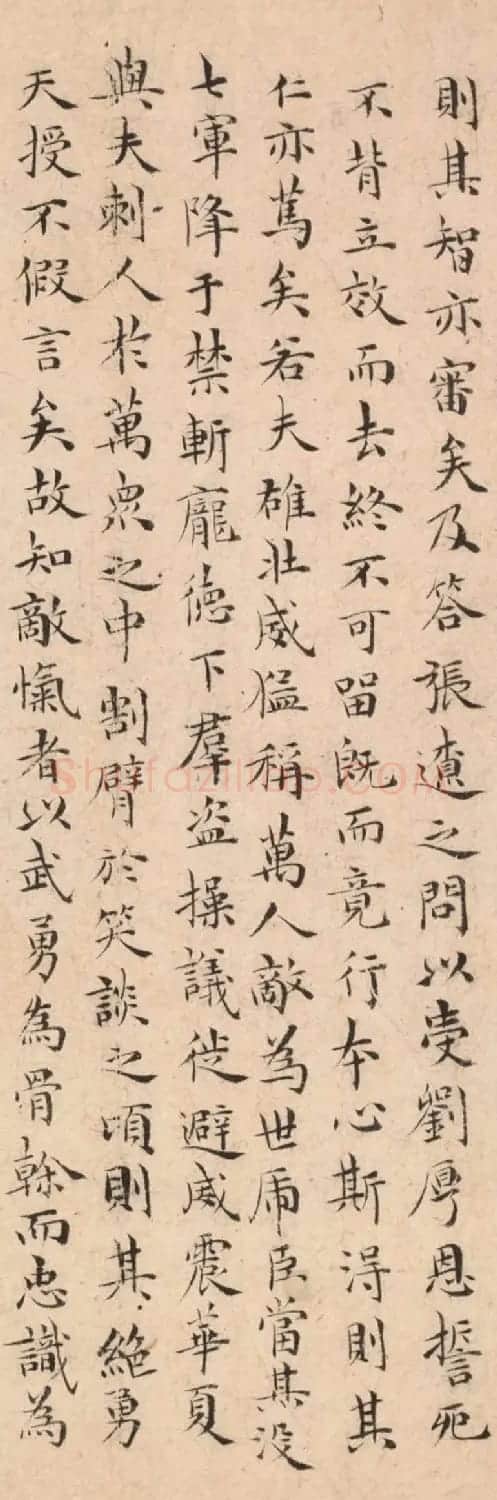 則其智亦審矣及答張遼之問以受劉厚恩誓死
不背立效而去終不可留既而竟行本心斯得則其
仁亦篤矣若夫雄壯威猛稱萬人敵為世虎臣當其没
七軍降于禁斬龐德下羣盜操議徙避威震華夏
與夫刺人於萬眾之中割臂於笑談之頃則其絶勇
天授不假言矣故知敵愾者以武勇為骨榦而忠識為